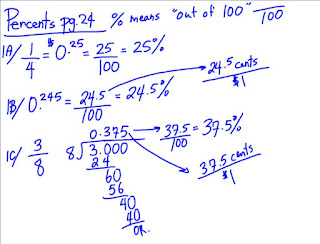 Percents pg.24 % means "out of 100" /100
1A/ 1/4 = $0.25 = 25/100 = 25%
1B/ 0.245 = 24.5/100 = 24.5% 24.5 cents/$1
1C/ 3/8 8)3.000 0.375 37.5/100 = 37.5%
24
60
56
40
40
OR.
37.5 cents/$1